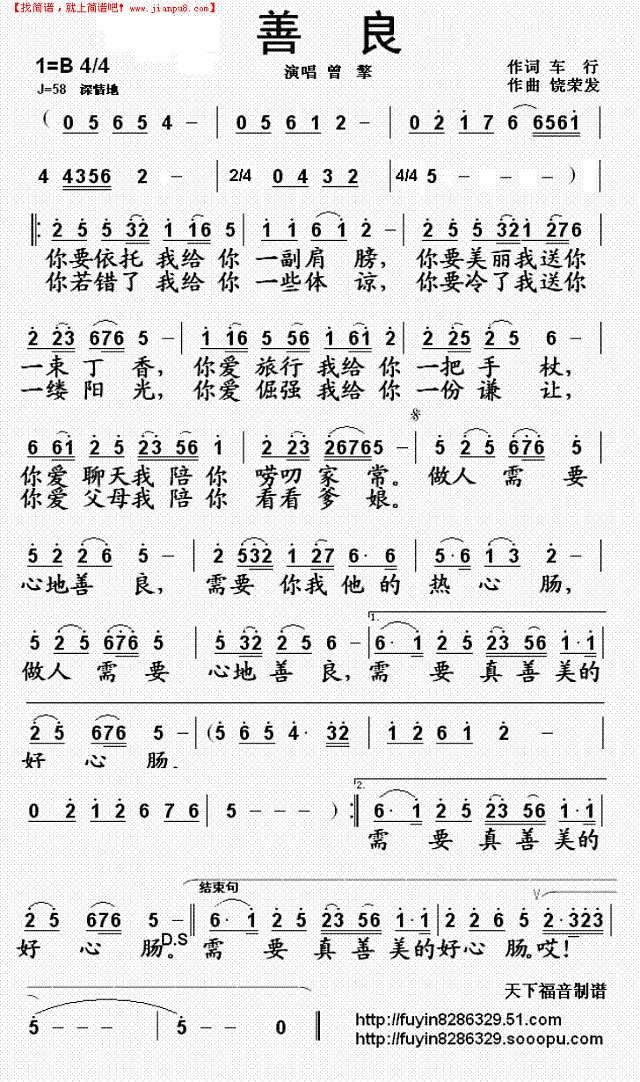 【找简谱，就上简谱吧! www.jianpu8.com】
善 良
1=B 4/4
演唱 曾 擎
作词 车 行
J=58 深情地
作曲 饶荣发
( 0 5 6 5 4 – | 0 5 6 1 2 – | 0 2 1 7 6 6561 |
4 4356 2 – | 2/4 0 4 3 2 | 4/4 5 – – – )
2 5 5 32 1 16 5 | 1 1 6 1 2 – | 2 5 5 321 276 |
你要依托 我给 你 一副肩 膀， 你要美丽我送你
你若错了 我给 你 一些体 谅， 你要冷了我送你
2 23 676 5 – | 1 16 5 56 1 61 2 | 2 25 2 5 6 – |
一束 丁 香， 你爱 旅行 我给 你 一把 手 杖，
一缕 阳 光， 你爱 倔强 我给 你 一份 谦 让，
6 61 2 5 23 56 1 | 2 23 26765 – | 5 2 5 676 5 |
你爱 聊天我 陪你 唠叨 家 常。 做人 需 要
你爱 父母我 陪你 看看 爹 娘。
5 2 2 6 5 – | 2 532 1 27 6· 6 | 5·6 1 3 2 – |
心地善 良， 需要 你我 他 的 热 心 肠，
1.
5 2 5 676 5 | 5 32 2 5 6 – | 6· 1 2 5 23 56 1·1 |
做人 需 要 心地 善 良， 需 要 真 善 美的
2 5 676 5 – | (5 6 5 4· 32 | 1 2 61 2 – |
好 心 肠。
2.
0 2 1 2 6 7 6 | 5 – – – ) :‖ 6· 1 2 5 23 56 1·1 |
需 要 真 善 美的
结束句
V
2 5 676 5 – ‖ 6· 1 2 5 23 56 1·1 | 2 2 6 5 2·323 |
好 心 肠。D.S 需 要 真 善 美的好心 肠。哎!
天下福音制谱
5 – – – | 5 – – 0 ‖
http://fuyin8286329.51.com
http://fuyin8286329.sooopu.com